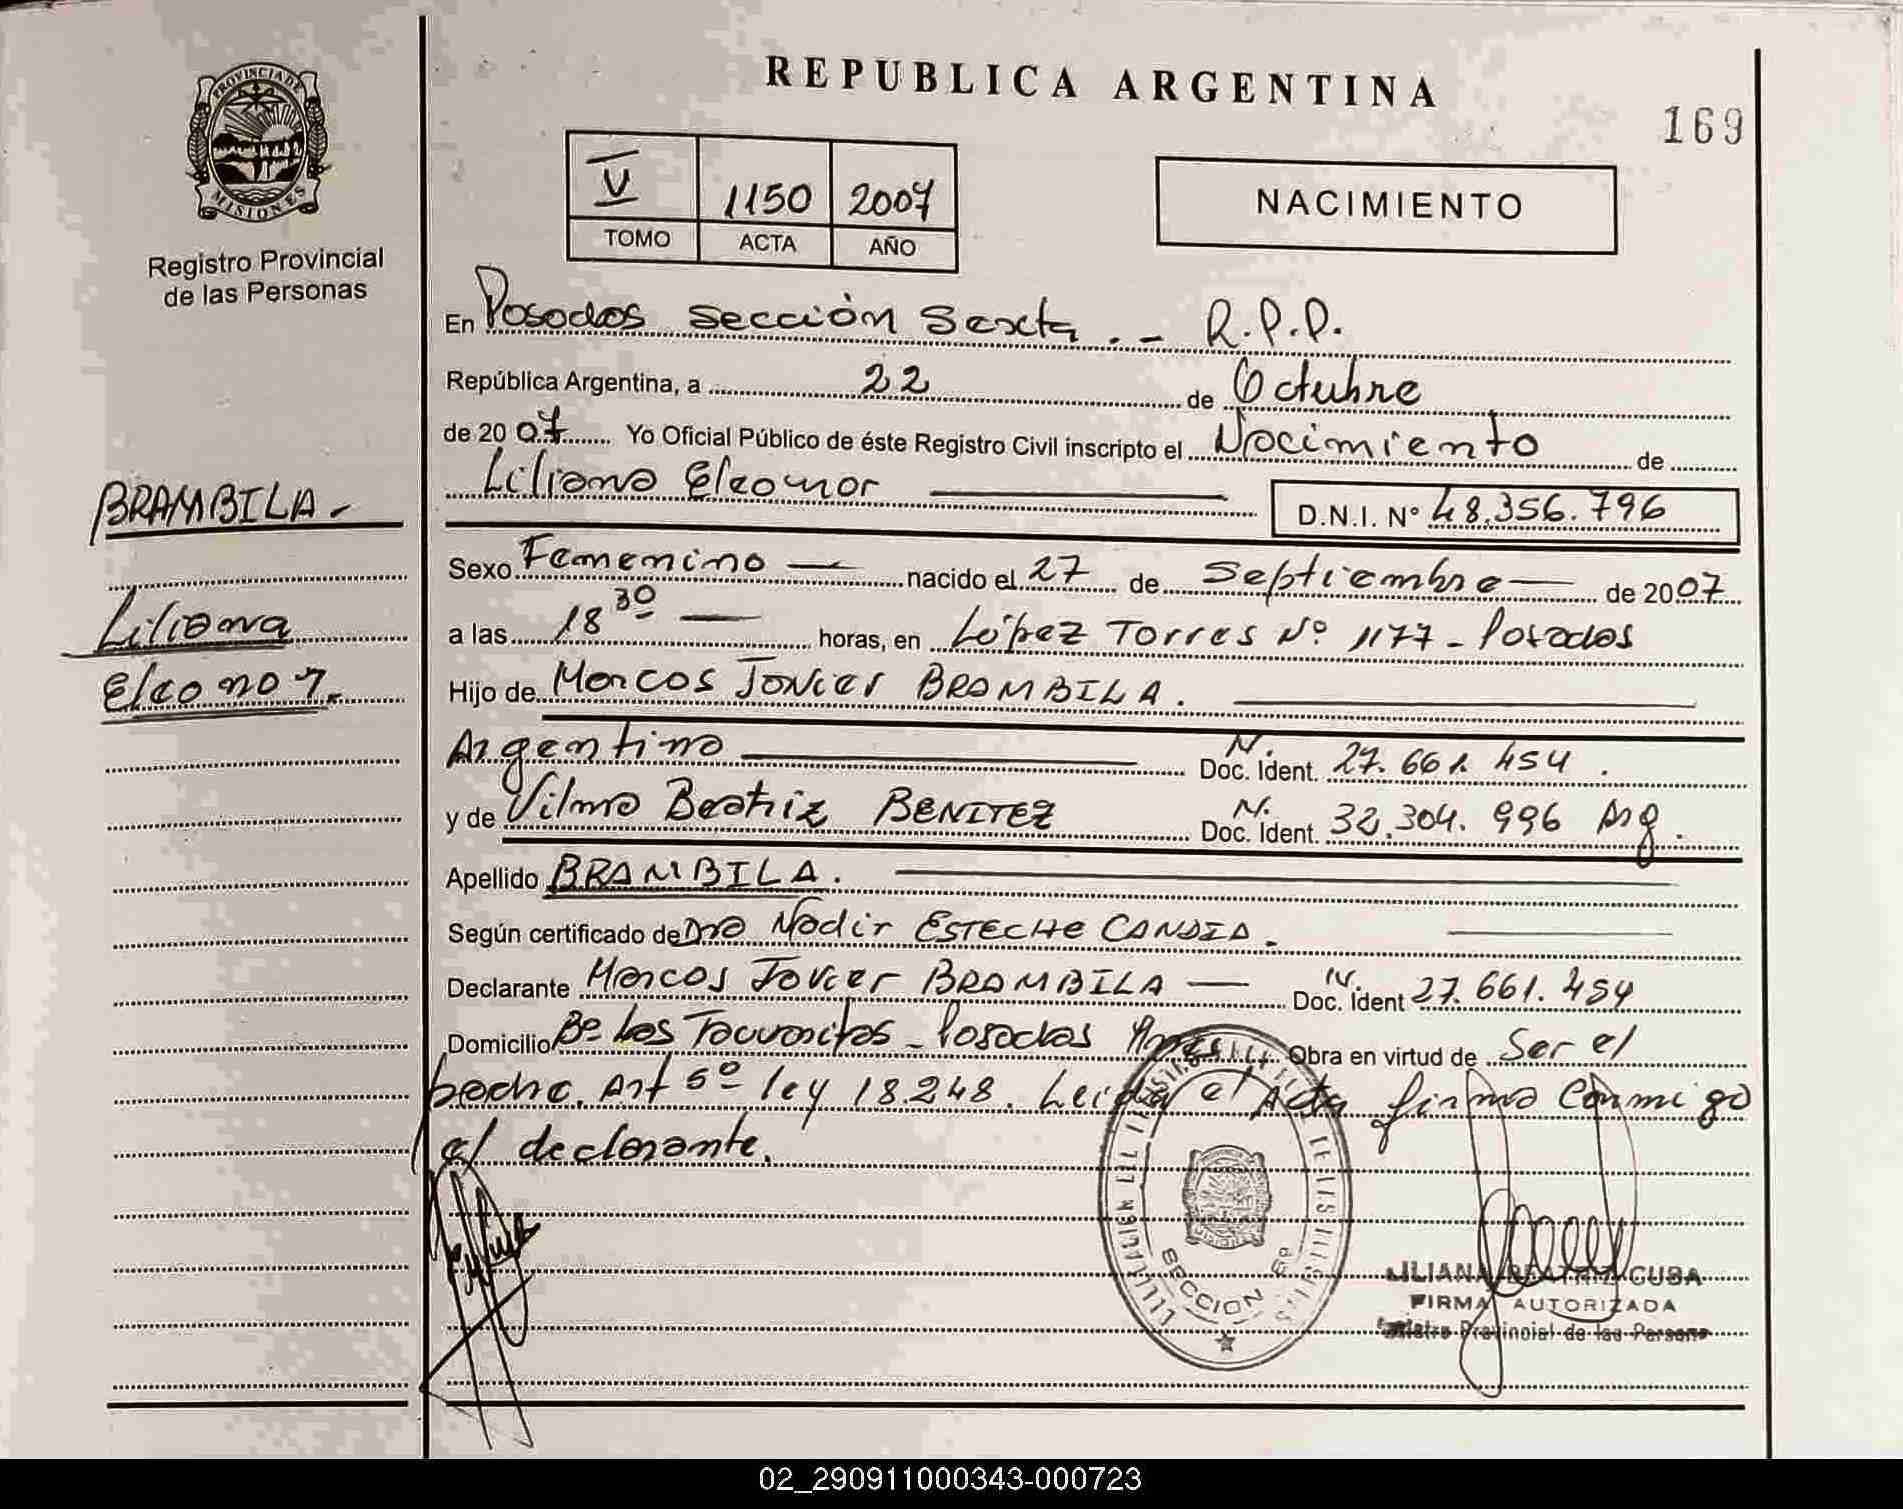 PROVINCIA DE
MISIONES
Registro Provincial
de las Personas
BRAMBILA -
Liliana
Eleonor.
REPUBLICA ARGENTINA
169
V 1150 2007
TOMO ACTA AÑO
NACIMIENTO
En Posadas Sección Sexta . - R.P.P.
República Argentina, a 22 de Octubre
de 2007 Yo Oficial Público de éste Registro Civil inscripto el Nacimiento de
Liliana Eleonor
D.N.I. N° 48.356.796
Sexo Femenino nacido el 27 de Septiembre de 2007
a las 18 30 horas, en López Torres N° 1177 - Posadas
Hijo de Marcos Javier BRAMBILA.
Argentino Doc. Ident. N. 27.661.454.
y de Vilma Beatriz BENITEZ Doc. Ident. N. 32.304.996 Arg.
Apellido BRAMBILA.
Según certificado de Dra Nadir ESTECHE CANDIA.
Declarante Marcos Javier BRAMBILA Doc. Ident N. 27.661.454
Domicilio B° Las Tacuaritas - Posadas Obra en virtud de Ser el
padre. Art 5° ley 18.248. Leída el Acta firma Conmigo
el declarante.
SECCION 6a
LILIANA BEATRIZ CUBA
FIRMA AUTORIZADA
Provincial de las Persona
02_290911000343-000723